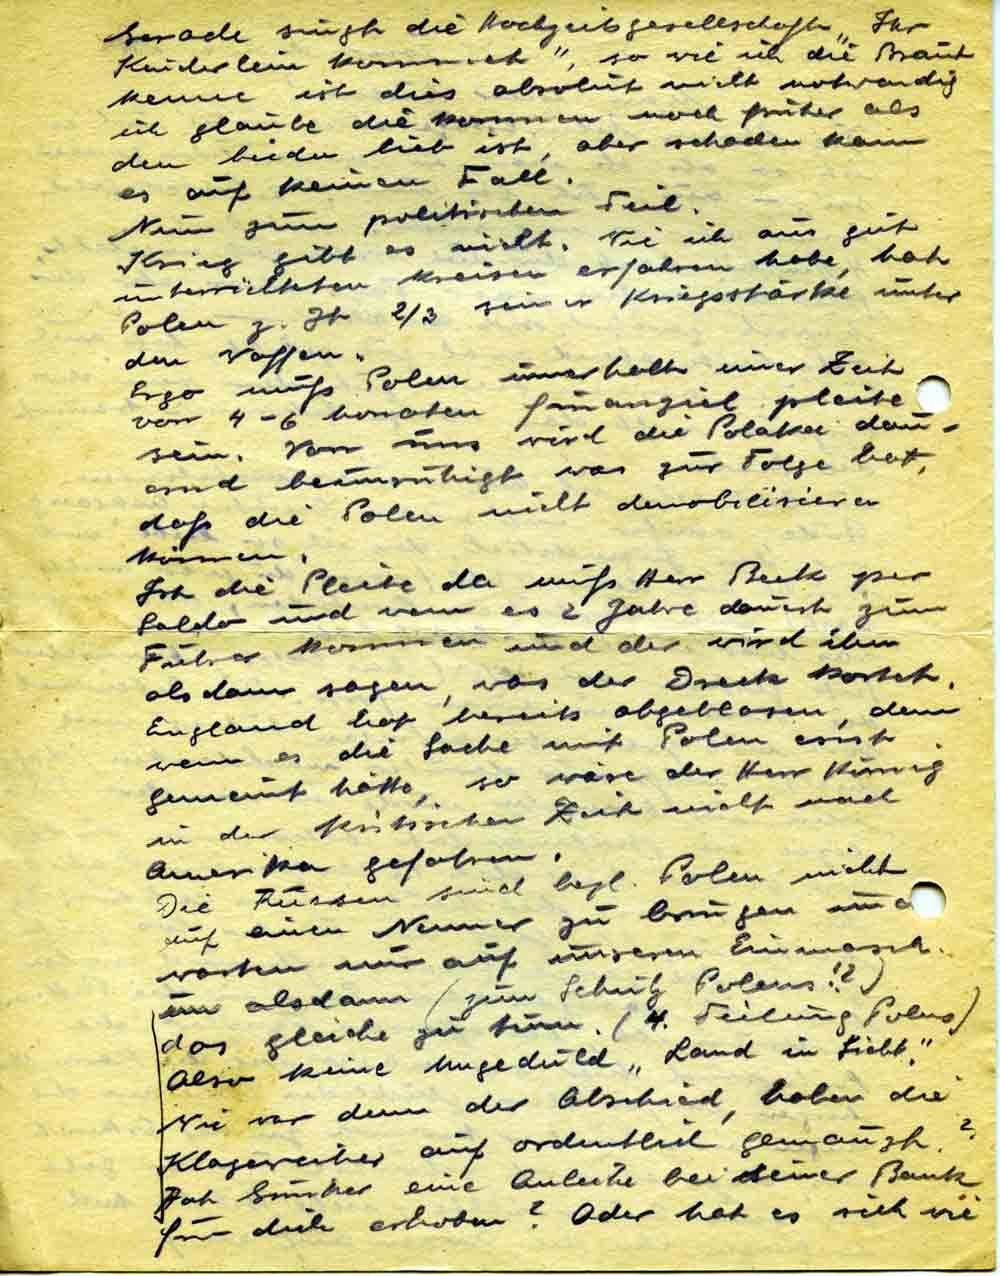 Gerade singt die Hochzeitsgesellschaft „Ihr
Kinderlein kommet", so wie ich die Braut
kenne ist dies absolut nicht notwendig
ich glaube die kommen noch früher als
den beiden lieb ist, aber schaden kann
es auf keinen Fall.
Nun zum politischen Teil.
Krieg gibt es nicht. Wie ich aus gut
unterrichteten Kreisen erfahren habe, hat
Polen z. Zt 2/3 seiner Kriegsstärke unter
den Waffen.
Ergo muß Polen innerhalb einer Zeit
von 4-6 Monaten finanziel pleite
sein. Von uns wird die Polakei dau-
ernd beunruhigt was zur Folge hat,
daß die Polen nicht demobilisieren
können.
Ist die Pleite da muß Herr Beck per
Saldo und wenn es 2 Jahre dauert zum
Führer kommen und der wird ihm
alsdann sagen, was der Dreck kostet.
England hat bereits abgeblasen, denn
wenn es die Sache mit Polen ernst
gemeint hätte, so wäre der Herr König
in der kritischen Zeit nicht nach
Amerika gefahren.
Die Russen sind bezl. Polen nicht
auf einen Nenner zu bringen und
warten nur auf unseren Einmarsch.
um alsdann (zum Schutz Polens!?)
das gleiche zu tun. (4. Teilung Polens)
Also keine Ungeduld „Land in Sicht."
Wie war denn der Abschied, haben die
Klageweiber auf ordentlich gemaugt?
Hat eine Anleihe bei seiner Bank
für dich erhoben? Oder hat es sich wie